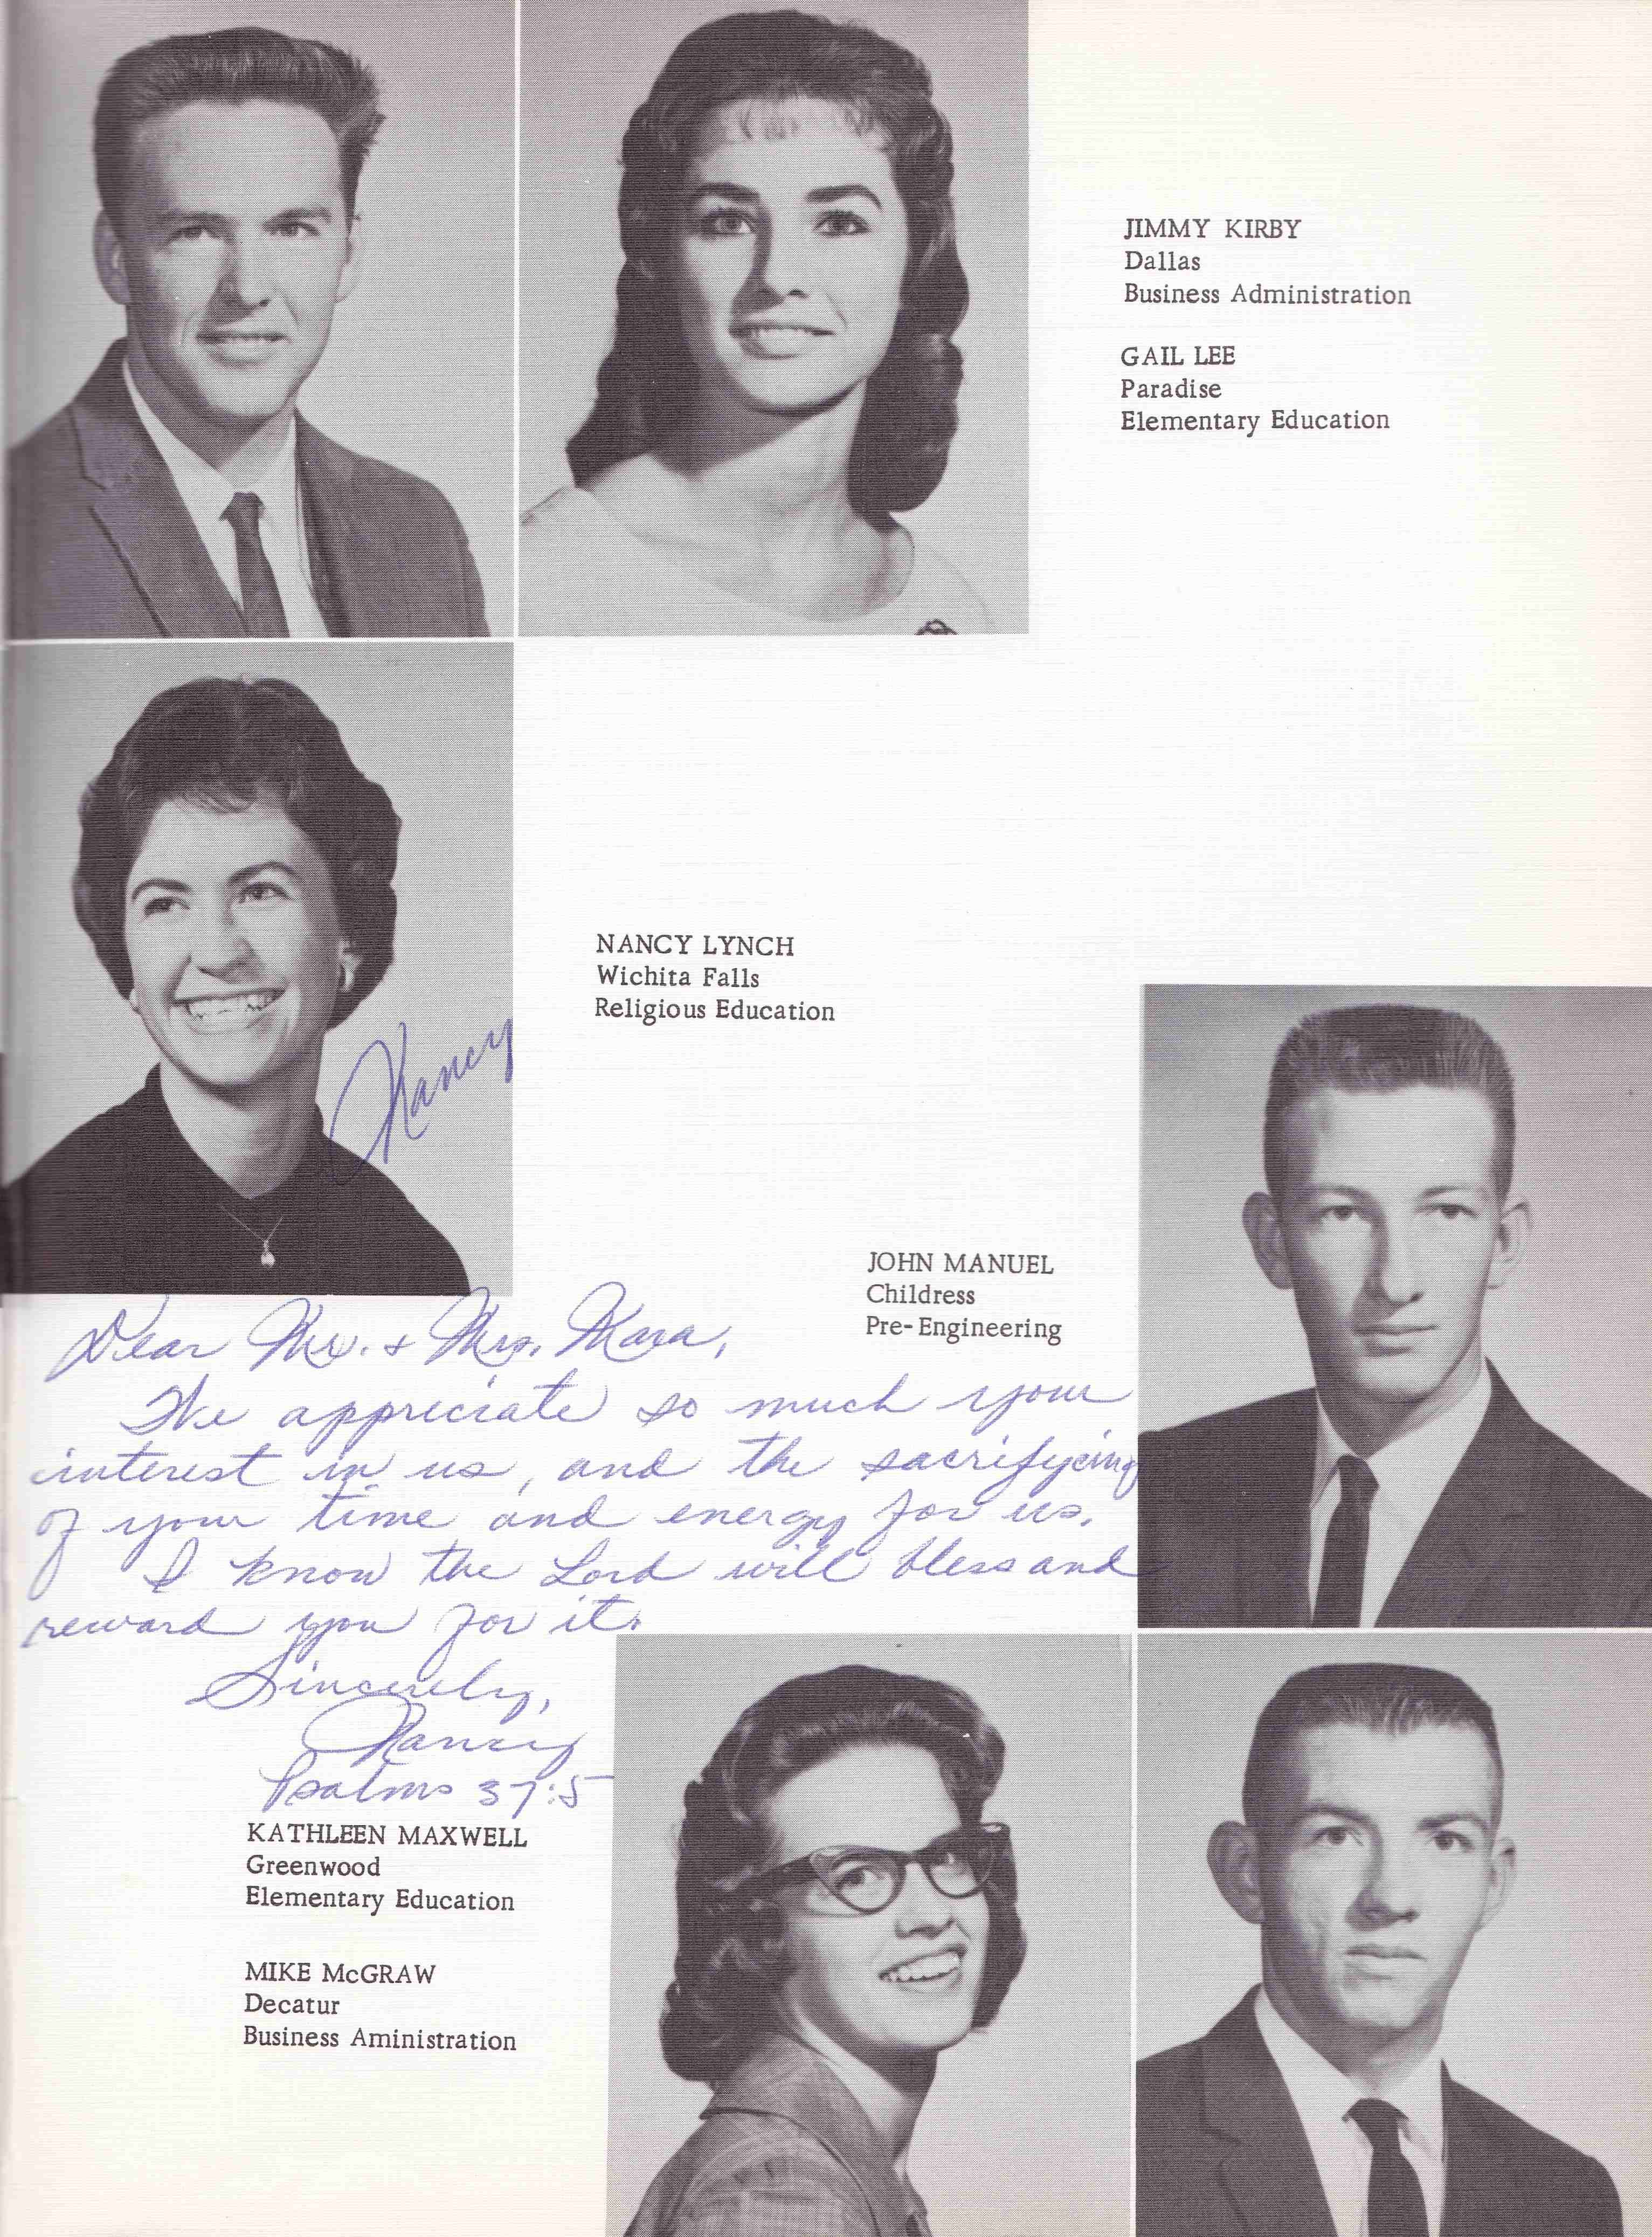 JIMMY KIRBY
Dallas
Business Administration
GAIL LEE
Paradise
Elementary Education
NANCY LYNCH
Wichita Falls
Religious Education
Nancy
JOHN MANUEL
Childress
Pre-Engineering
Dear Mr. & Mrs.
We appreciate so much your
interest in us, and the sacrifycing
of your time and energy for us.
I know the Lord will bless and
reward you for it.
Sincerely,
Nancy
Psalms 37:5
KATHLEEN MAXWELL
Greenwood
Elementary Education
MIKE McGRAW
Decatur
Business Aministration